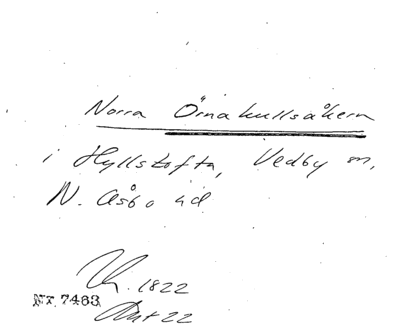 Norra Örnakullsåkern
i Hyllstofta, Vedby sn,
N. Åsbo hd
1822
NT 7463
Akt 22